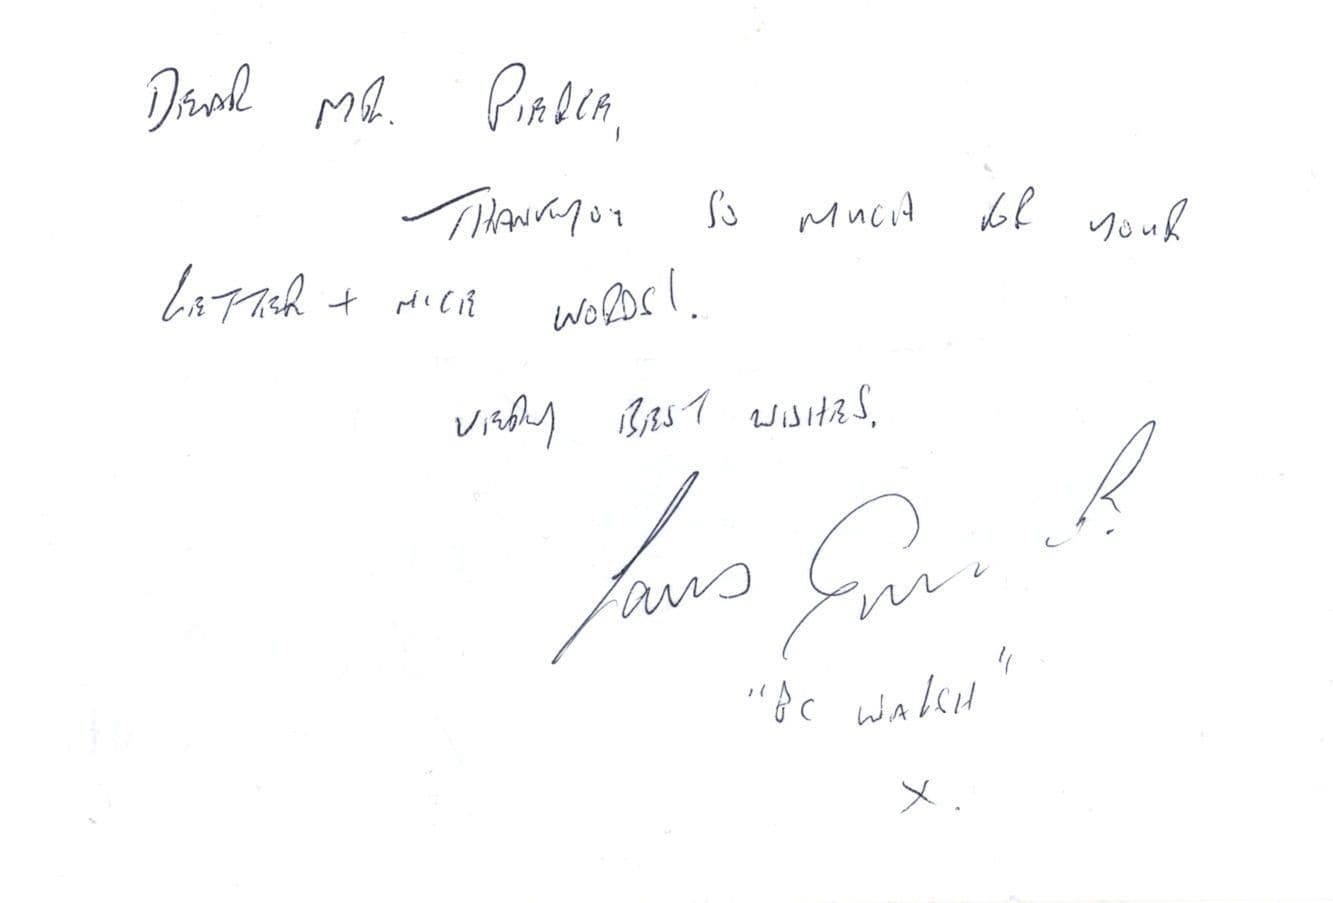 DEAR MR. PIERCE,
THANKYOU SO MUCH FOR YOUR
LETTER + NICE WORDS!.
VERY BEST WISHES.
"PC WALSH"
X.